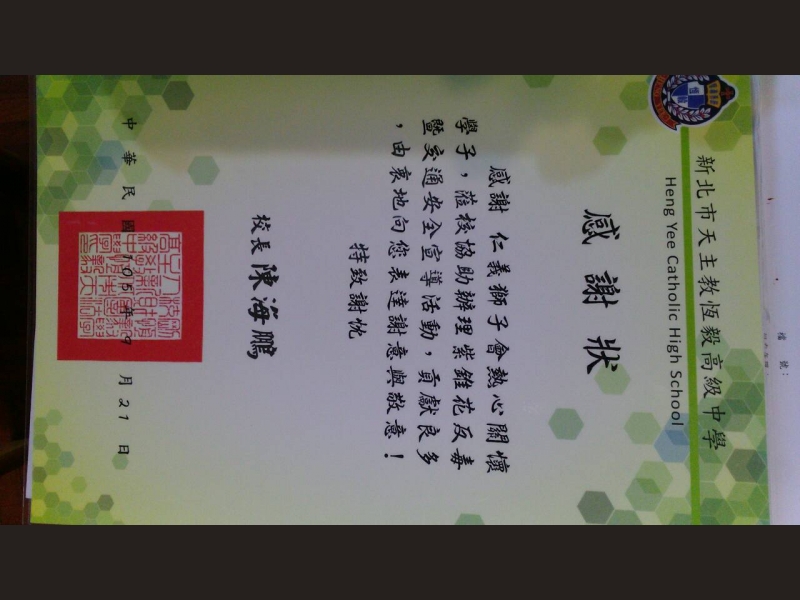 新北市天主教恆毅高級中學
Heng Yee Catholic High School
感謝狀
感謝 仁義獅子會熱心關懷
學子，蒞校協助辦理紫錐花反毒
暨交通安全宣導活動，貢獻良多
，由衷地向您表達謝意與敬意！
特致謝忱
校長 陳海鵬
中華民國105年9月21日
檔 號：